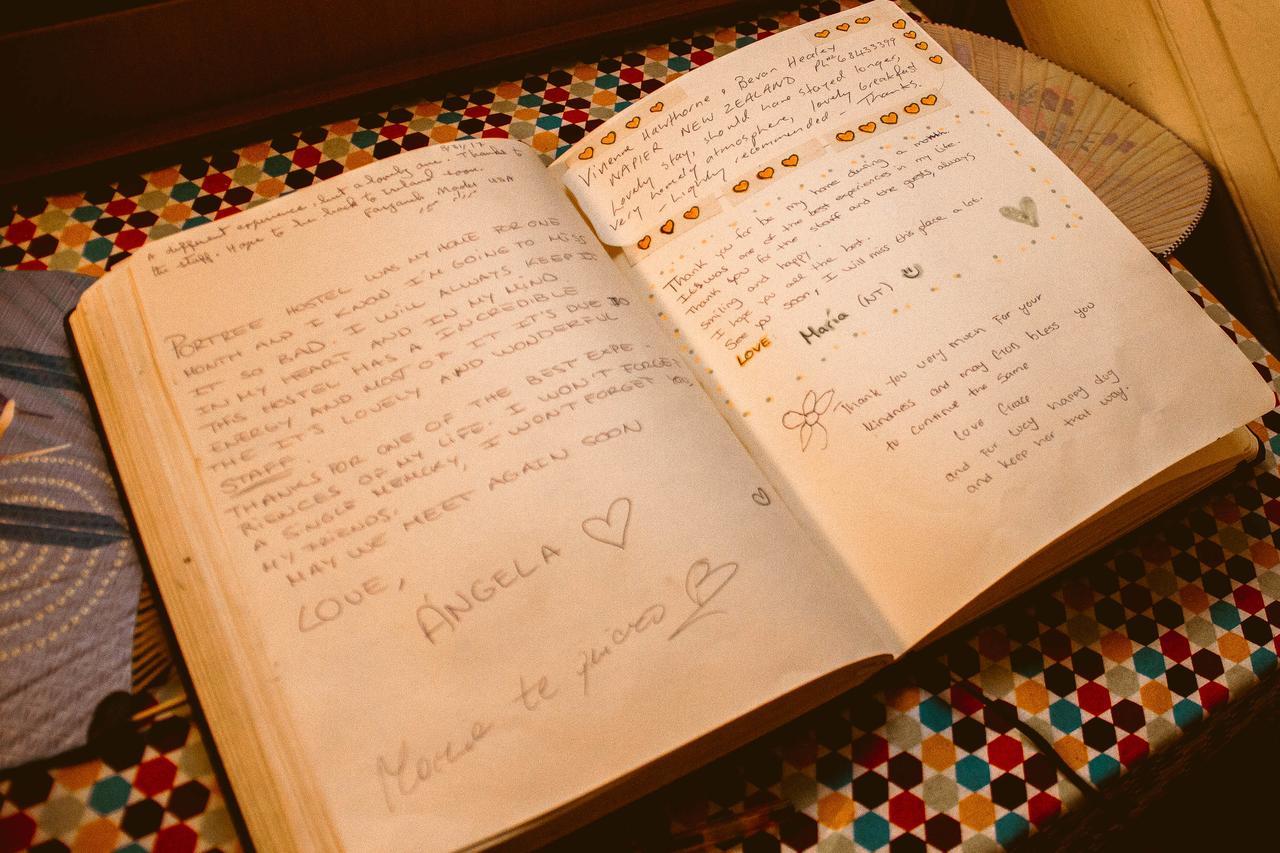 A different experience but a lovely one. Thanks to
the staff. Hope to be back to Ireland soon.
USA
PORTREE HOSTEL WAS MY HOME FOR ONE
MONTH AND I KNOW I'M GOING TO MISS
IT SO BAD. I WILL ALWAYS KEEP IT
IN MY HEART AND IN MY MIND
THIS HOSTEL HAS A INCREDIBLE
ENERGY AND MOST OF IT IT'S DUE TO
THE IT'S LOVELY AND WONDERFUL
STAFF.
THANKS FOR ONE OF THE BEST EXPE-
RIENCES OF MY LIFE. I WON'T FORGET
A SINGLE MEMORY, I WON'T FORGET YOU
MY FRIENDS.
MAY WE MEET AGAIN SOON
LOVE,
ÁNGELA
te
Vivienne Hawthorne & Bevan Healey
NAPIER NEW ZEALAND Ph 68433399
Lovely stay, should have stayed longer,
very homely atmosphere, lovely breakfast
- Highly recommended - Thanks.
Thank you for be my home during a month.
It was one of the best experiences in my life.
Thank you for the staff and the guests, always
smiling and happy.
I hope you all the best.
See you soon, I will miss this place a lot.
LOVE
María (NT)
Thank you very much for your
kindness and may God bless you
to continue the same
love Grace
and fur wcy happy dog
and keep her that way.